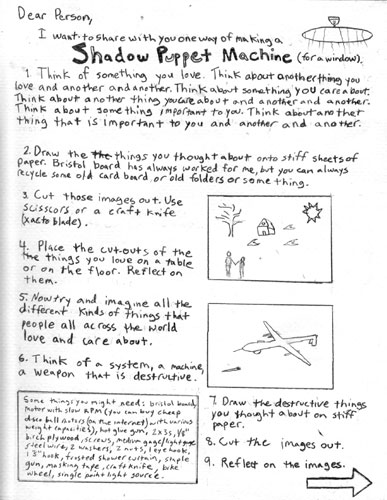 Dear Person,
I want to share with you one way of making a
Shadow Puppet Machine (for a window).
1. Think of something you love. Think about another thing you
love and another and another. Think about something you care about.
Think about another thing you care about and another and another.
Think about something important to you. Think about another
thing that is important to you and another and another.
2. Draw the the things you thought about onto stiff sheets of
paper. Bristol board has always worked for me, but you can always
recycle some old card board or old folders or some thing.
3. Cut those images out. Use
scissors or a craft knife
(xacto blade).
4. Place the cut-outs of the
the things you love on a table
or on the floor. Reflect on
them.
5. Now try and imagine all the
different kinds of things that
people all across the world
love and care about.
6. Think of a system, a machine,
a weapon that is destructive.
Some things you might need: bristol board,
motor with slow RPM (you can buy cheap
disco ball motors (on the internet) with various
weight capacities), hot glue gun, 2x3s, 1/8"
birch plywood, screws, medium gage/light gage
steel wire, 2 washers, 2 nuts, 1 eye hook,
1 3" hook, frosted shower curtain, staple
gun, masking tape, craft knife, bike
wheel, single point light source.
7. Draw the destructive things
you thought about on stiff
paper.
8. Cut the images out.
9. Reflect on the images.